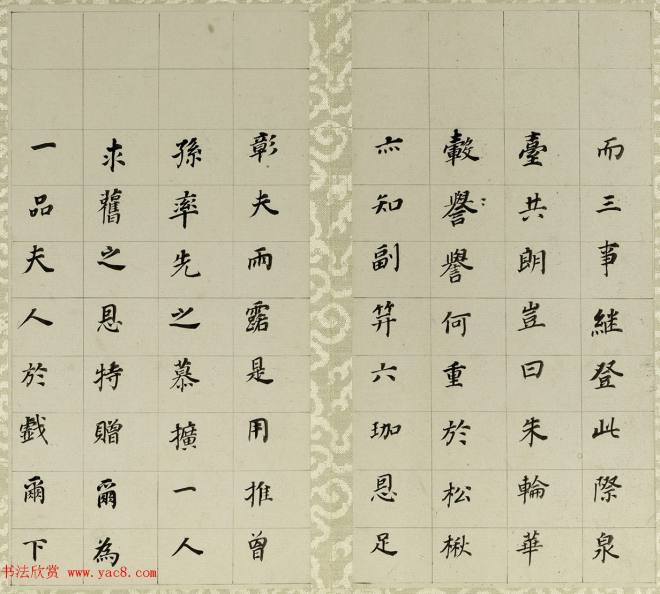 而三事継登此際泉
臺共朗豈曰朱輪華
轂譽譽何重於松楸
亦知副笄六珈恩足
彰夫雨露是用推曾
孫率先之慕擴一人
求舊之恩特贈爾為
一品夫人於戲爾下
书法欣赏 www.yac8.com